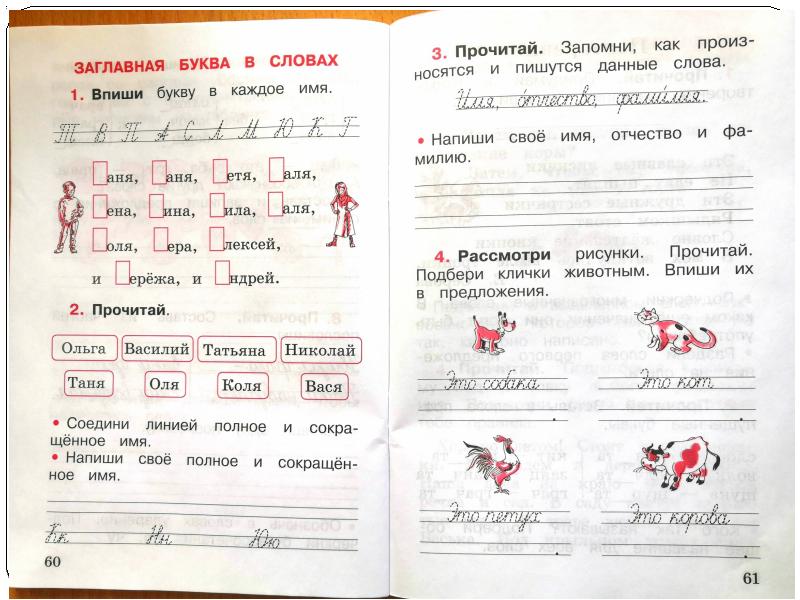 ЗАГЛАВНАЯ БУКВА В СЛОВАХ
1. Впиши букву в каждое имя.
Т В П А С Л М Ю К Г
аня, аня, етя, аля,
ена, ина, ила, аля,
оля, ера, лексей,
и ерёжа, и ндрей.
2. Прочитай.
Ольга Василий Татьяна Николай
Таня Оля Коля Вася
• Соедини линией полное и сокра-
щённое имя.
• Напиши своё полное и сокращён-
ное имя.
Кк Нн Юю
60
3. Прочитай. Запомни, как произ-
носятся и пишутся данные слова.
И́мя, о́тчество, фами́лия.
• Напиши своё имя, отчество и фа-
милию.
4. Рассмотри рисунки. Прочитай.
Подбери клички животным. Впиши их
в предложения.
Это собака Это кот
. .
Это петух Это корова
. .
61